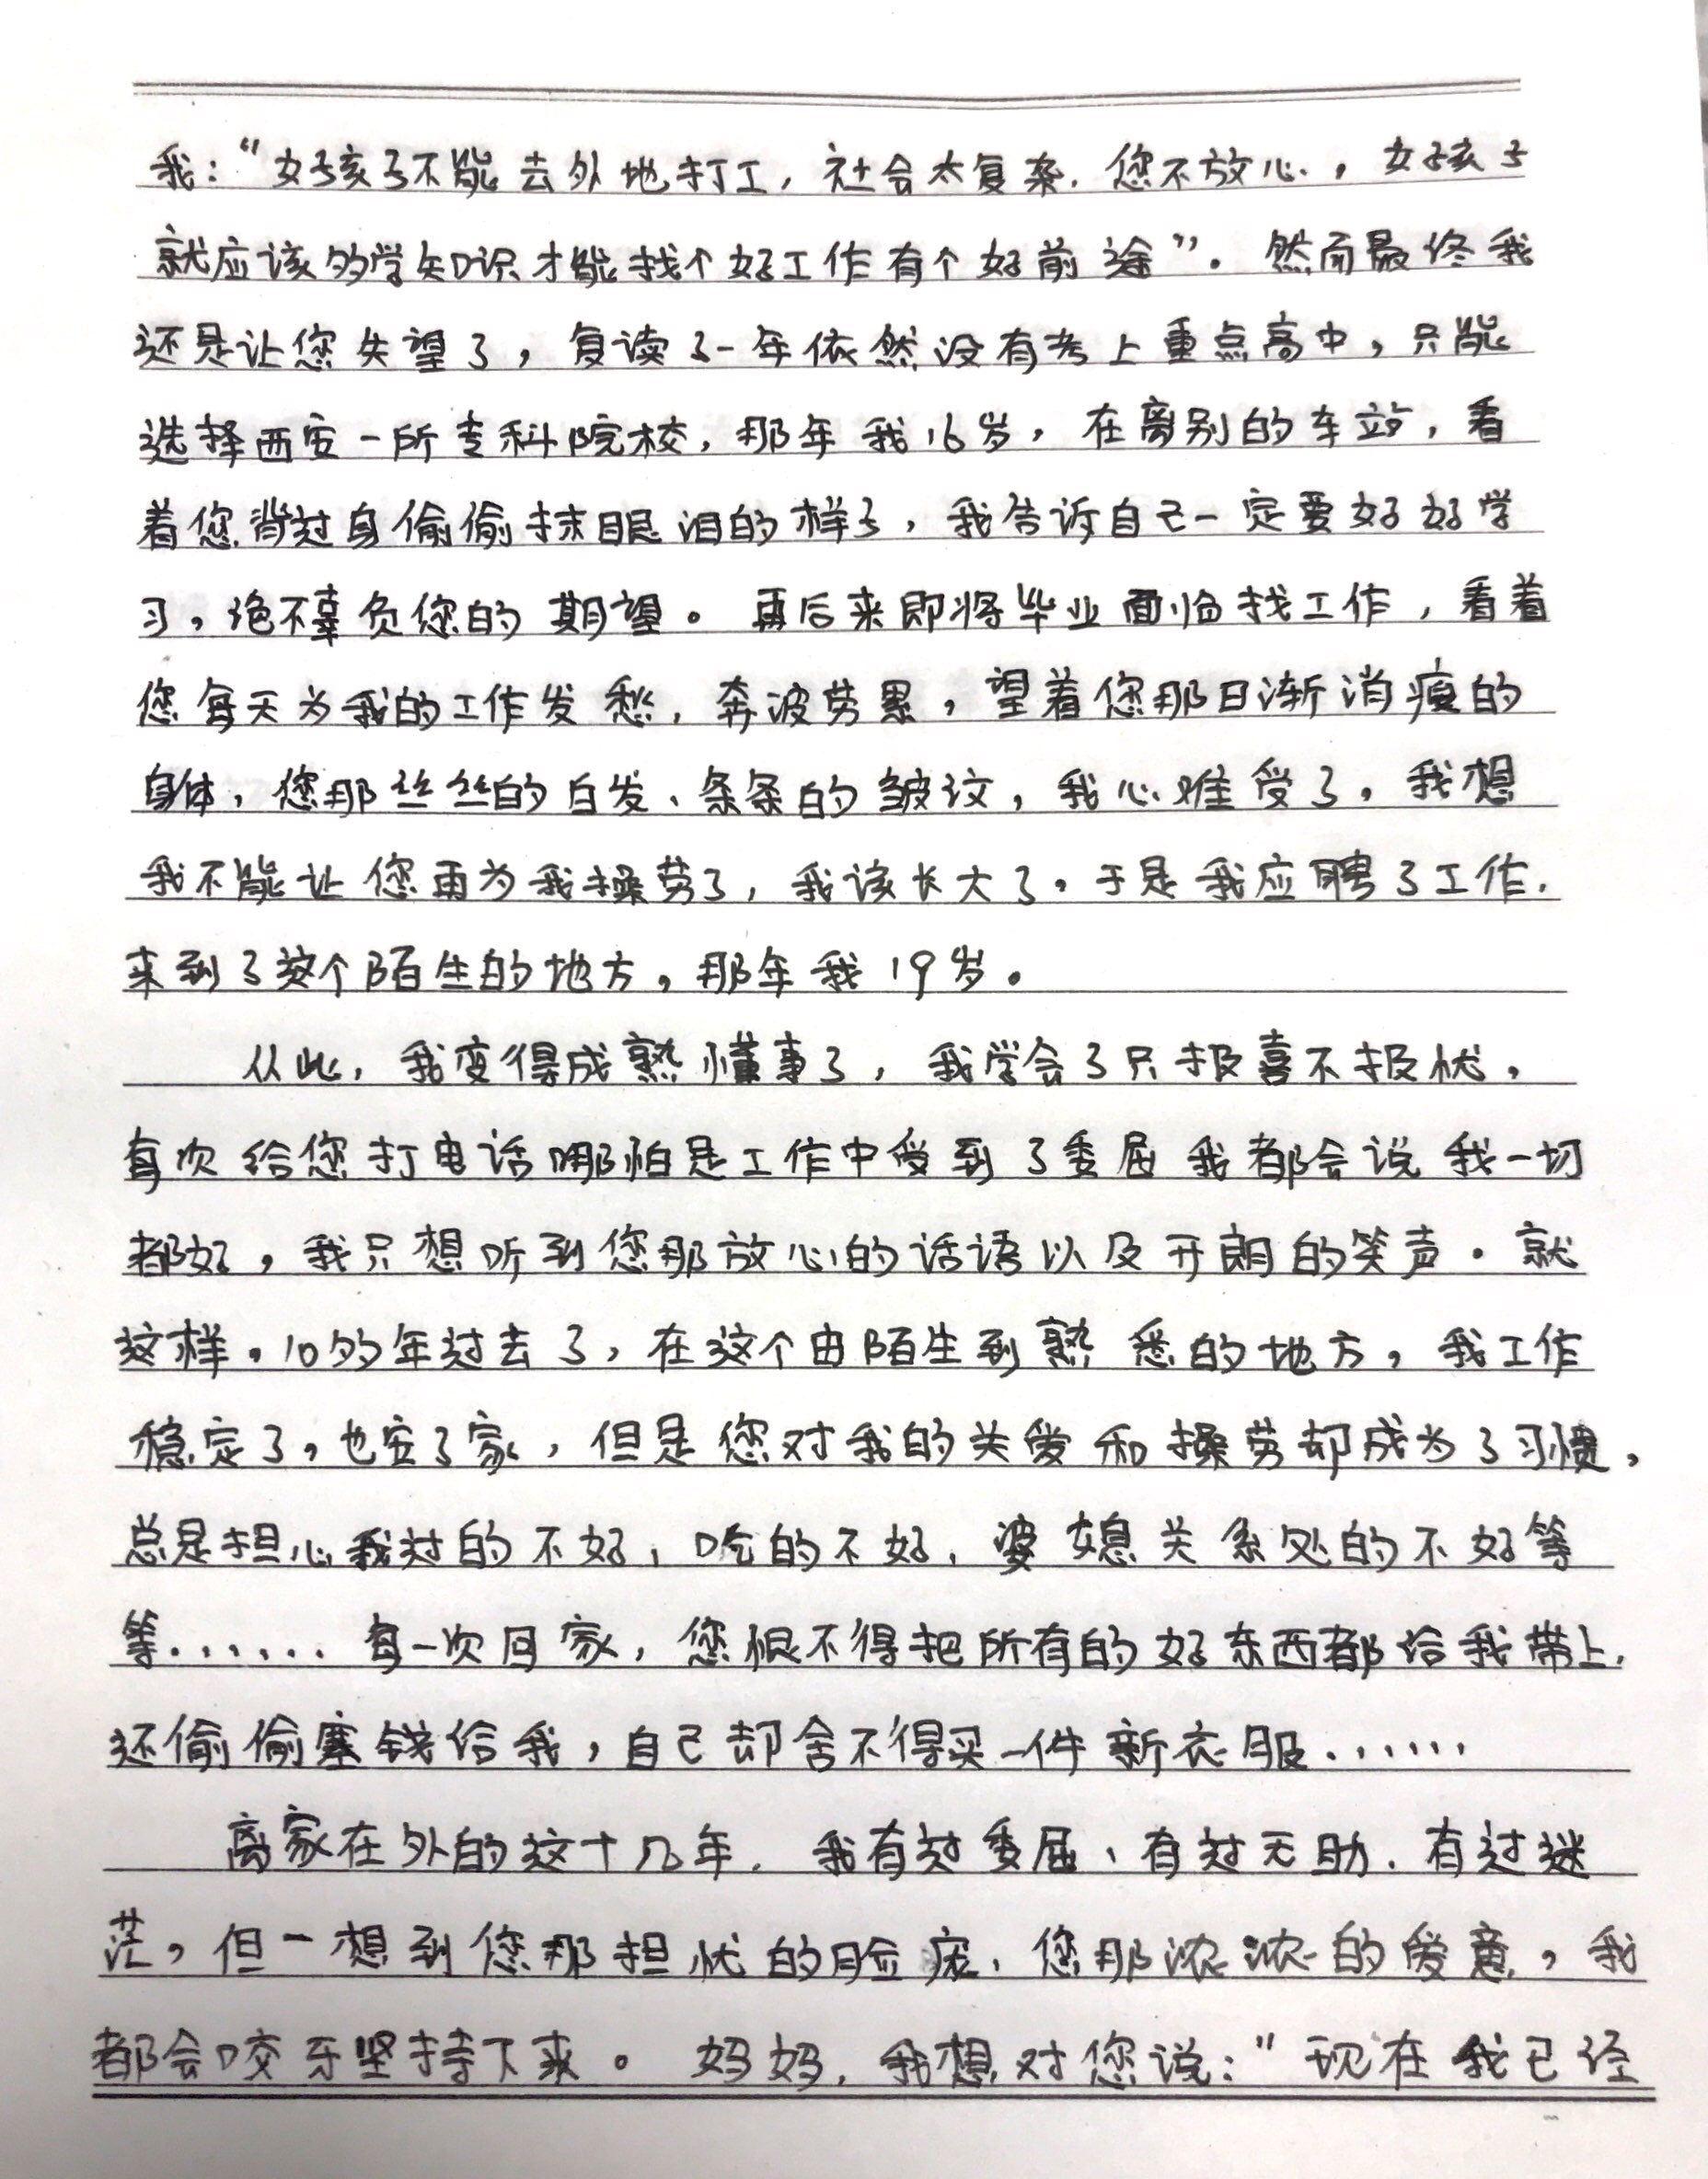 我：“女孩子不能去外地打工，社会太复杂，您不放心，女孩子
就应该多学知识才能找个好工作有个好前途”。然而最终我
还是让您失望了，复读了一年依然没有考上重点高中，只能
选择西安一所专科院校，那年我16岁，在离别的车站，看
着您背过身偷偷抹眼泪的样子，我告诉自己一定要好好学
习，绝不辜负您的期望。再后来即将毕业面临找工作，看着
您每天为我的工作发愁，奔波劳累，望着您那日渐消瘦的
身体，您那丝丝的白发、条条的皱纹，我心难受了，我想
我不能让您再为我操劳了，我该长大了。于是我应聘了工作，
来到了这个陌生的地方，那年我19岁。
从此，我变得成熟懂事了，我学会了只报喜不报忧，
每次给您打电话哪怕是工作中受到了委屈我都会说我一切
都好，我只想听到您那放心的话语以及开朗的笑声。就
这样，10多年过去了，在这个由陌生到熟悉的地方，我工作
稳定了，也安了家，但是您对我的关爱和操劳却成为了习惯，
总是担心我过的不好，吃的不好，婆媳关系处的不好等
等......每一次回家，您恨不得把所有的好东西都给我带上，
还偷偷塞钱给我，自己却舍不得买一件新衣服......
离家在外的这十几年，我有过委屈、有过无助、有过迷
茫，但一想到您那担忧的脸庞、您那浓浓的爱意，我
都会咬牙坚持下来。妈妈，我想对您说：“现在我已经